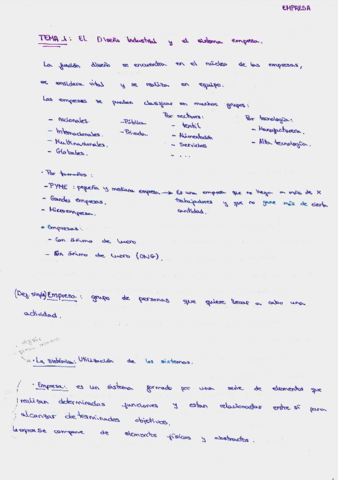 EMPRESA
TEMA 1: El Diseño Industrial y el sistema empresa.
La función diseño se encuentra en el núcleo de las empresas,
se considera vital y se realiza en equipo.
Las empresas se pueden clasificar en muchos grupos:
- Nacionales.
- Internacionales.
- Multinacionales.
- Globales.
- Pública
- Privada
Por sectores:
- textil
- Alimentación
- Servicios
- ...
Por tecnología:
- Manufacturera.
- Alta tecnología.
· Por tamaños:
- PYME: pequeña y mediana empresa → Es una empresa que no llega a más de X
trabajadores y que no gane más de cierta
cantidad.
- Grandes empresas.
- Microempresa.
· Empresas:
- Con ánimo de lucro
- Sin ánimo de lucro (ONG).
(Def. simple) Empresa: grupo de personas que quiere llevar a cabo una
actividad.
· La sistémica: Utilización de los sistemas.
· Empresa: es un sistema formado por una serie de elementos que
realizan determinadas funciones y están relacionados entre sí para
alcanzar determinados objetivos.
se compone de elementos físicos y abstractos.